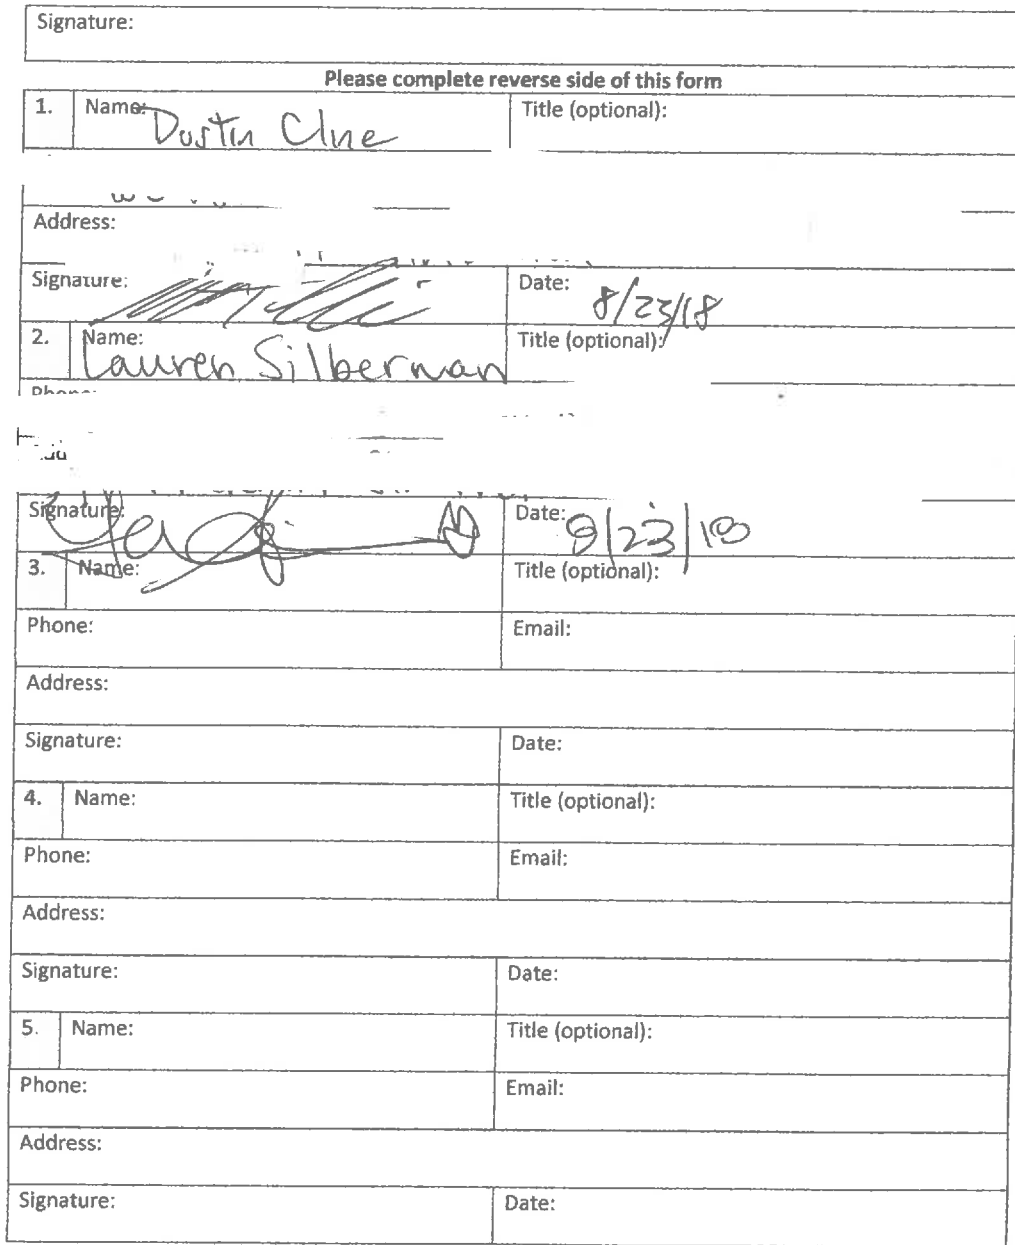 Signature:
Please complete reverse side of this form
1. Name: Dustin Clne Title (optional):
Address:
Signature: Date: 8/23/18
2. Name: Lauren Silberman Title (optional):
Phone:
Signature: Date: 8/23/18
3. Name: Title (optional):
Phone: Email:
Address:
Signature: Date:
4. Name: Title (optional):
Phone: Email:
Address:
Signature: Date:
5. Name: Title (optional):
Phone: Email:
Address:
Signature: Date: